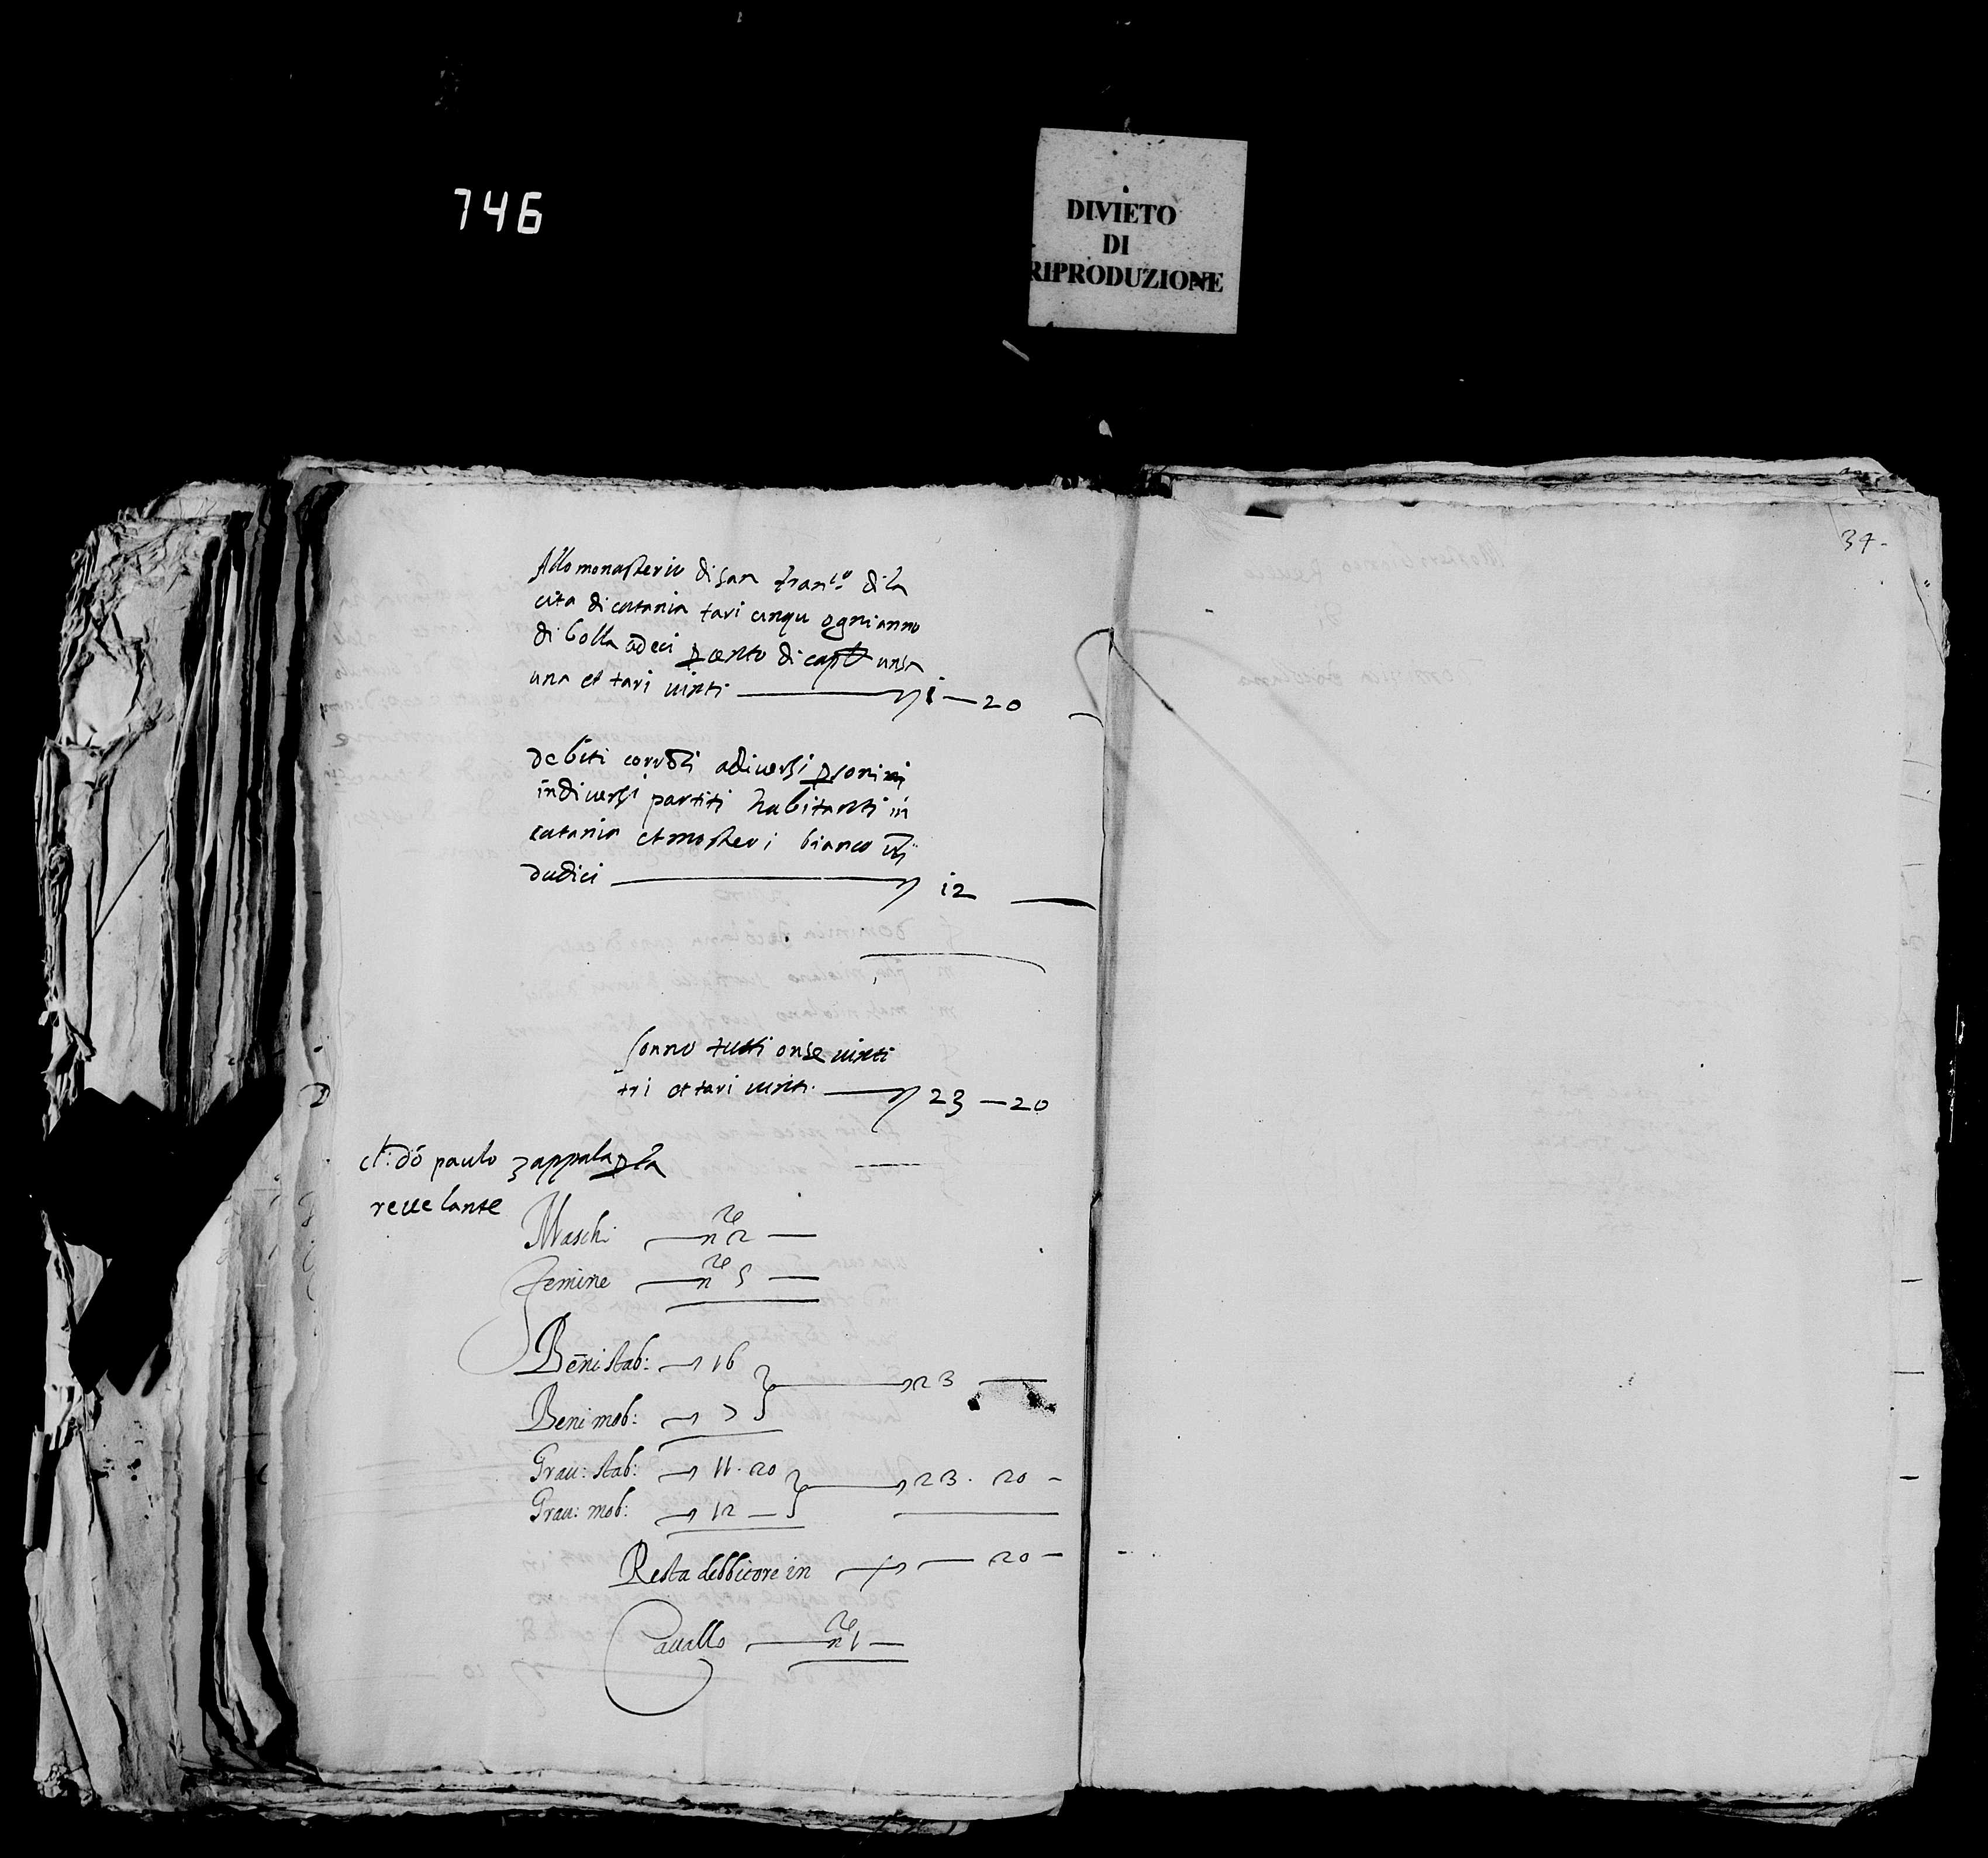 746
DIVIETO
DI
RIPRODUZIONE
Allo monasterio di san Fran.co di la
cita di catania tari cinqu ogni anno
di bolla a deci p cento di capli unsa
una et tari vinti — 1 — 20
debiti corrĕti a diversi p̱soni
in diversi partiti habitanti in
catania et mosteri bianco uzi
dudici — 12 —
sonno tutti onse vinti
tri et tari vinti — 23 — 20
cl: dō paulo zappala p̱ la
revelante
Maschi — n.re 2 —
Femine — n.re 5 —
Beni stab: — 16
— 23 —
Beni mob: — 7
Grav: stab: — 11 . 20
— 23 . 20 —
Grav: mob: — 12 —
Resta debbitore in — 20 —
Cavallo — n.re 1 —
34